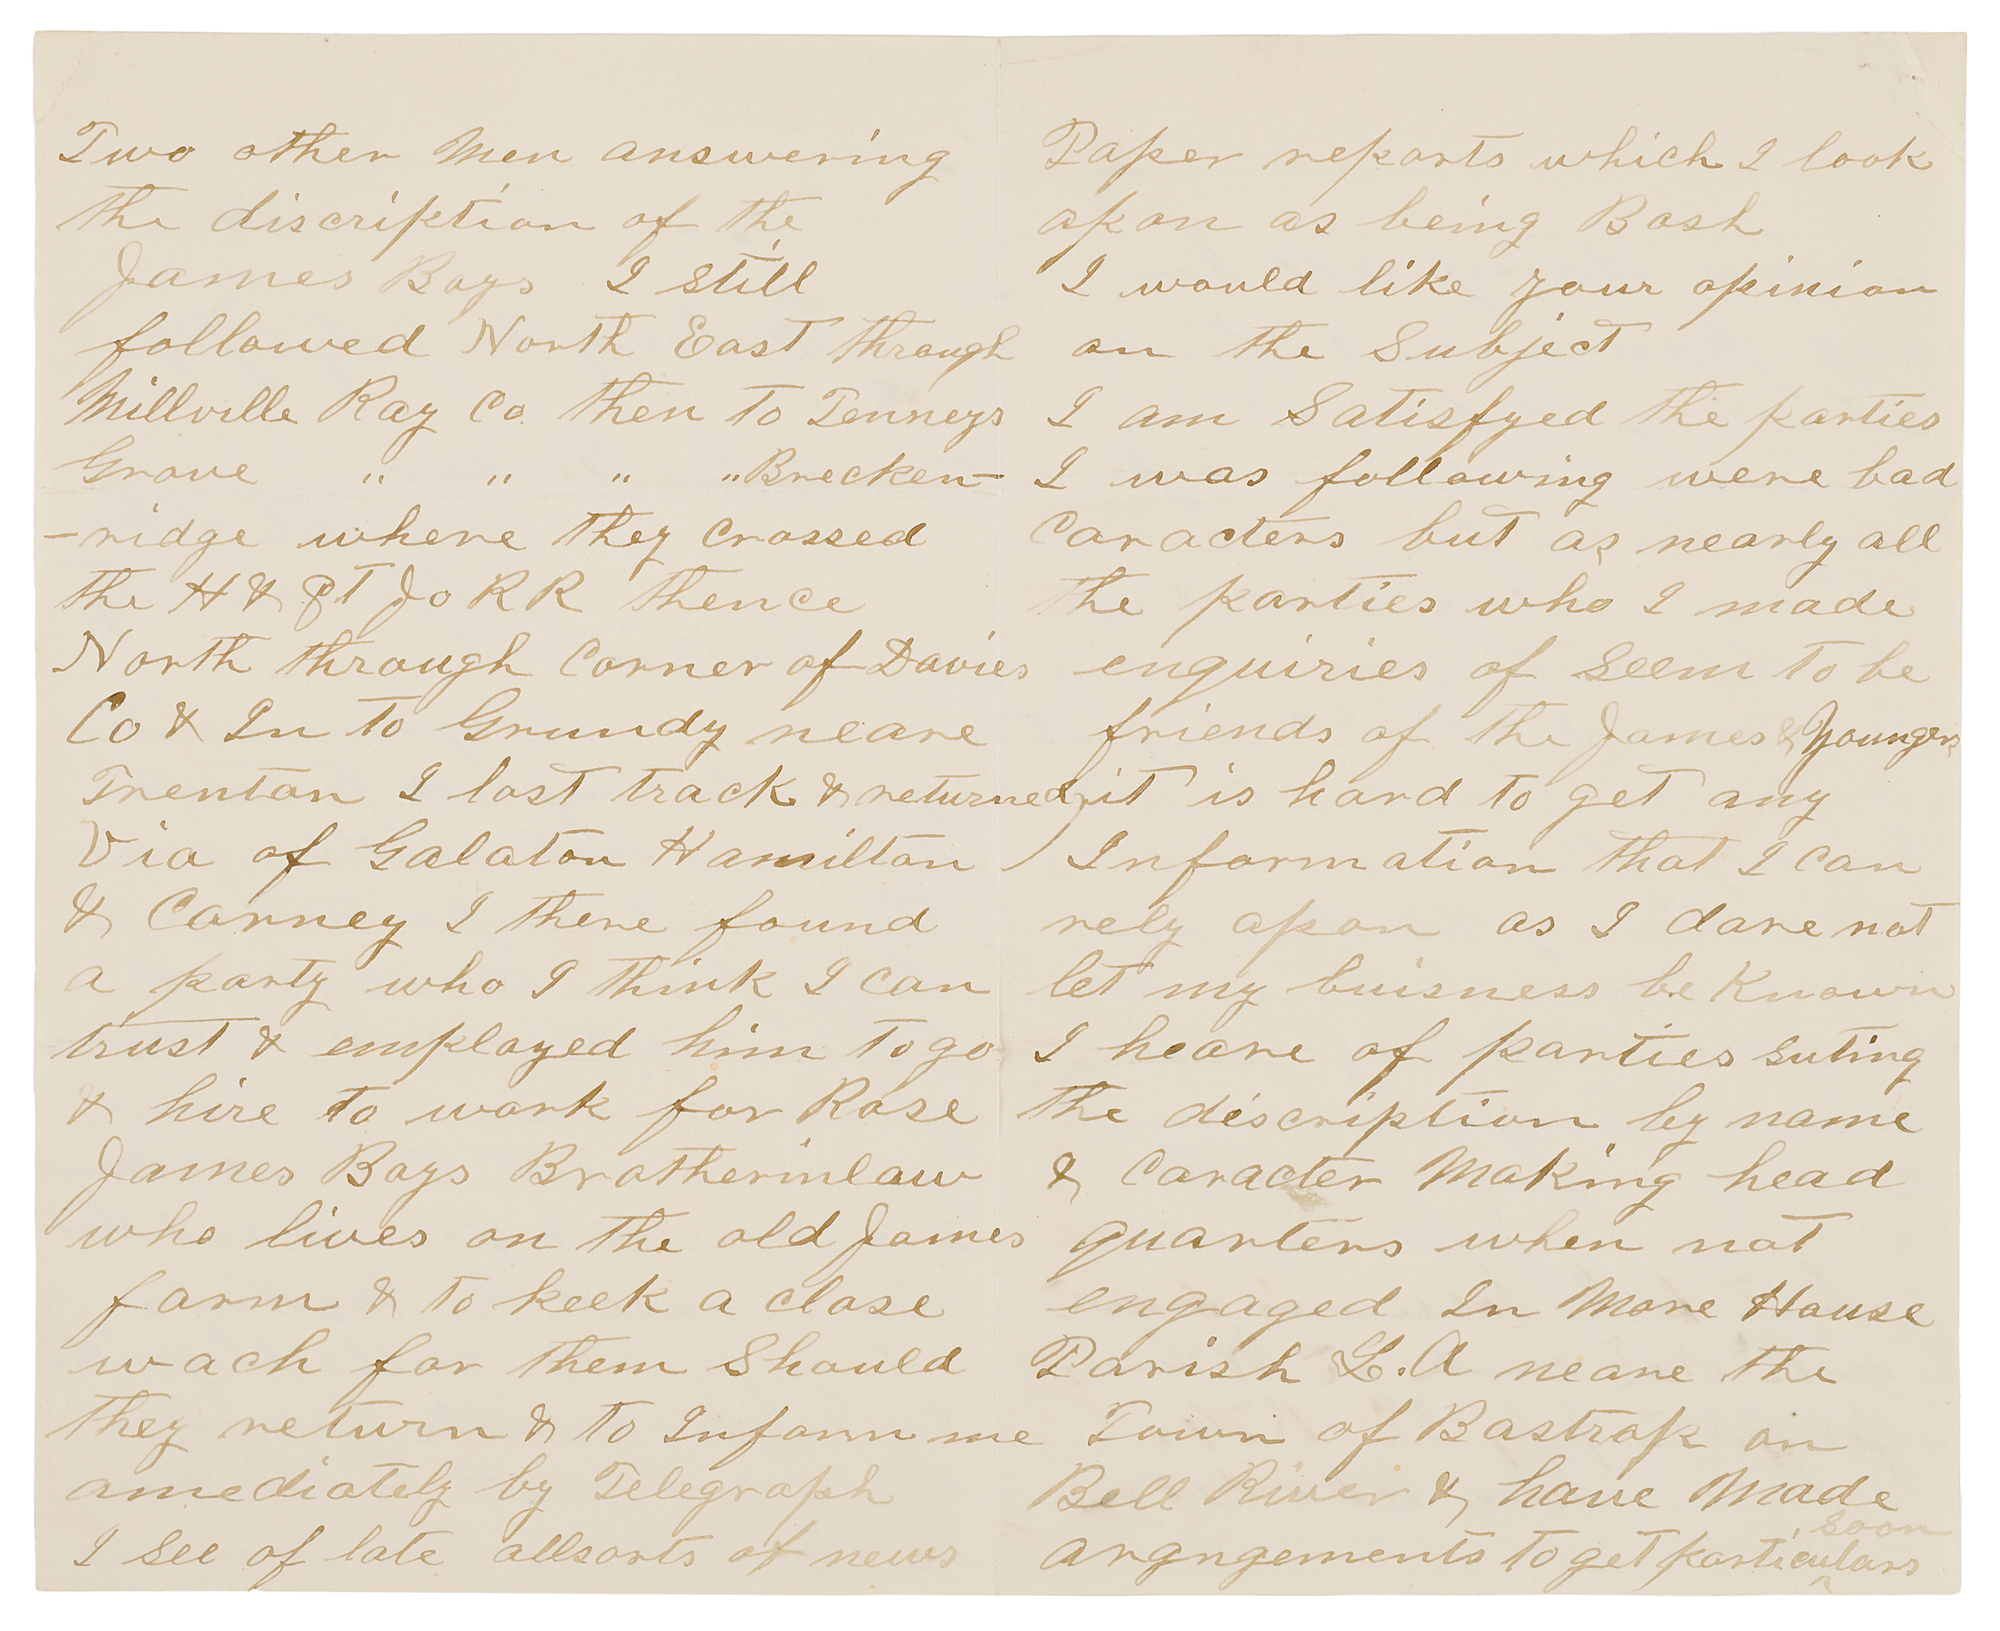 Two other Men answering
the discription of the
James Boys I still
followed North East through
Millville Ray Co. then to Tenneys
Grove " " " " Brecken-
-ridge where they crossed
the H & St Jo R R thence
North through Corner of Davies
Co & In to Grundy neare
Trenton I lost track & returned
Via of Galaton Hamilton
& Carney I there found
a party who I think I can
trust & employed him to go
& hire to work for Rose
James Boys Brotherinlaw
who lives on the old James
farm & to keek a close
wach for them Should
they return & to Inform me
amediately by Telegraph
I See of late allsorts of news
Paper reports which I look
apon as being Bosh
I would like your opinion
on the Subject
I am Satisfyed the parties
I was following were bad
Caracters but as nearly all
the parties who I made
enquiries of Seem to be
friends of the James & Youngers
it is hard to get any
Information that I can
rely apon as I dare not
let my buisness be Known
I heare of parties suting
the description by name
& Caracter Making head
quarters when not
engaged In More House
Parish L.A neare the
Town of Bastrop on
Bell River & have Made
soon
argngements to get particulars